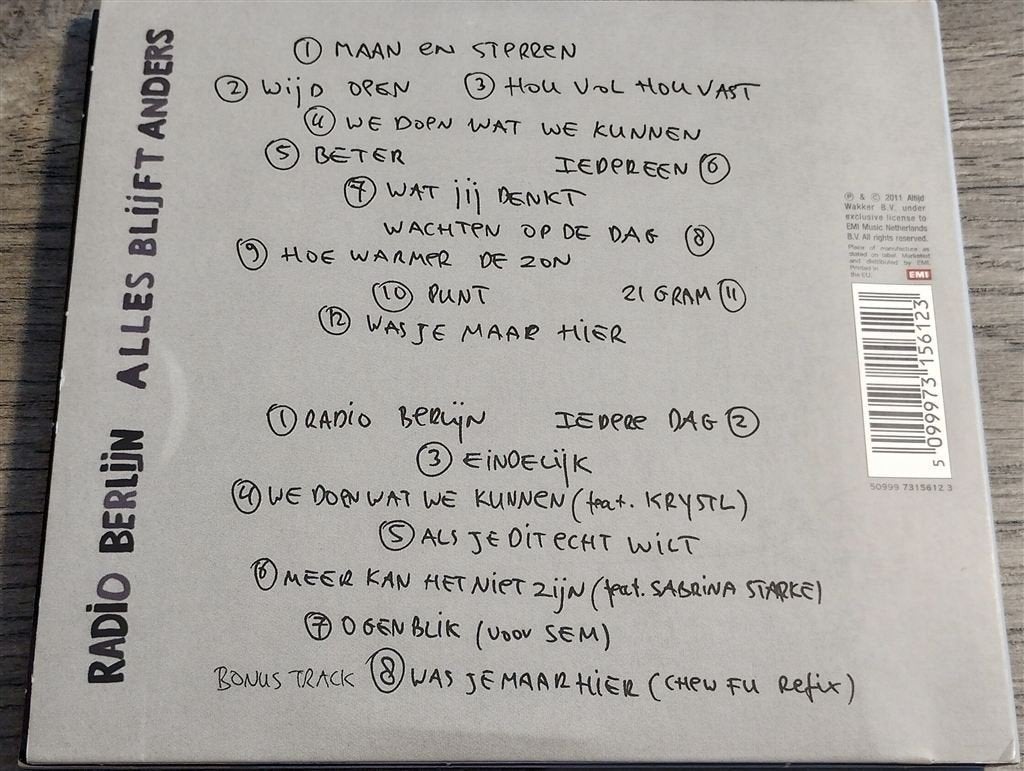 RADIO BERLIJN ALLES BLIJFT ANDERS
① MAAN EN STERREN
② WIJD OPEN ③ HOU VOL HOU VAST
④ WE DOEN WAT WE KUNNEN
⑤ BETER IEDEREEN ⑥
⑦ WAT JIJ DENKT
WACHTEN OP DE DAG ⑧
⑨ HOE WARMER DE ZON
⑩ PUNT 21 GRAM ⑪
⑫ WAS JE MAAR HIER
① RADIO BERLIJN IEDERE DAG ②
③ EINDELIJK
④ WE DOEN WAT WE KUNNEN (feat. KRYSTL)
⑤ ALS JE DIT ECHT WILT
⑥ MEER KAN HET NIET ZIJN (feat. SABRINA STARKE)
⑦ OGENBLIK (voor SEM)
BONUS TRACK ⑧ WAS JE MAAR HIER (CHEW FU Refix)
℗ & © 2011 Altijd
Wakker B.V. under
exclusive license to
EMI Music Netherlands
B.V. All rights reserved.
Place of manufacture as
stated on label. Marketed
and distributed by EMI.
Printed in
the EU.
EMI
5 099973 156123
50999 7315612 3